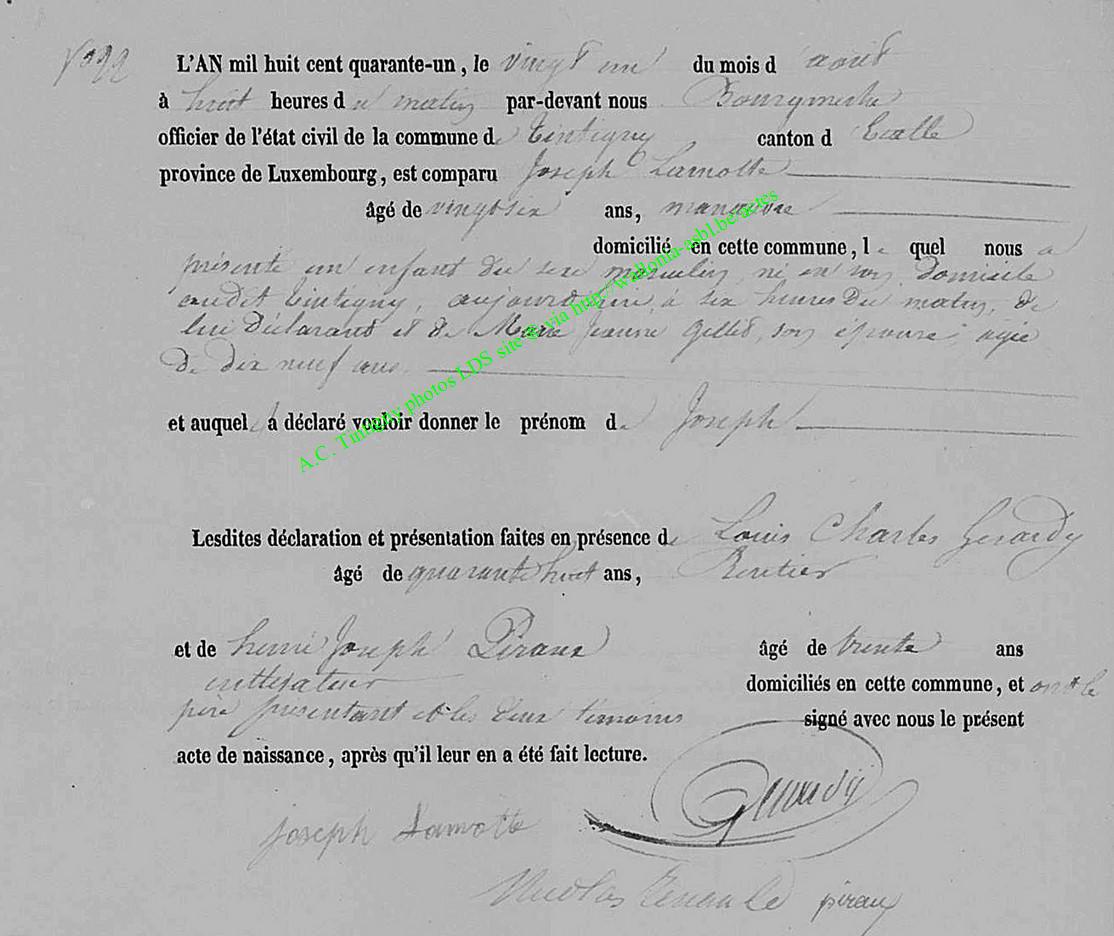 N° 32
L'AN mil huit cent quarante-un, le vingt un du mois d août
à huit heures d u matin par-devant nous Bourgmestre
officier de l'état civil de la commune de Tintigny canton d Etalle
province de Luxembourg, est comparu Joseph Lamotte
âgé de vingt six ans, manœuvre
domicilié en cette commune, le quel nous a
présenté un enfant du sexe masculin, né en son domicile
audit Tintigny, aujourd'hui à six heures du matin, de
lui déclarant et de Marie Jeanne Gillet, son épouse agée
de dix neuf ans.
et auquel a déclaré vouloir donner le prénom de Joseph
Lesdites déclaration et présentation faites en présence de Louis Charles Gerardy
âgé de quarante huit ans, Rentier
et de henri Joseph Piraux âgé de trente ans
cultivateur domiciliés en cette commune, et ont le
père présentant et les deux témoins signé avec nous le présent
acte de naissance, après qu'il leur en a été fait lecture.
Gerardy
joseph Lamotte
Nicolas piraux
A.C. Tintigny photos LDS site via http://wallonia-asbl.be/actes